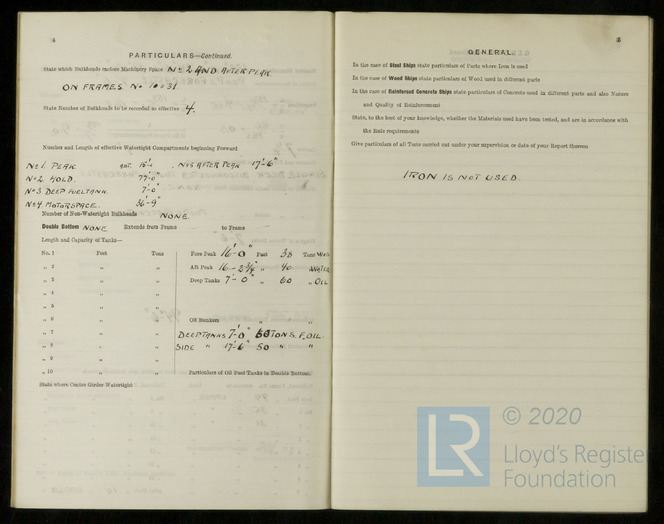 4
PARTICULARS—Continued.
State which Bulkheads enclose Machinery Space No 2 AND AFTER PEAK
ON FRAMES No 10 & 31
State Number of Bulkheads to be recorded as effective 4.
Number and Length of effective Watertight Compartments beginning Forward
No 1 PEAK 16'-0" No 5 AFTER PEAK 17'-6"
No 2 HOLD. 77'-0"
No 3 DEEP FUEL TANK. 7'-0"
No 4 MOTOR SPACE. 36'-9"
Number of Non-Watertight Bulkheads NONE.
Double Bottom NONE Extends from Frame to Frame
Length and Capacity of Tanks—
No. 1 Feet Tons Fore Peak 16'-0" Feet 38 Tons WATER
„ 2 „ „ Aft Peak 16-2¾" „ 40 WATER
„ 3 „ „ Deep Tanks 7'-0" „ 60 „ OIL
„ 4 „ „
„ 5 „ „
„ 6 „ „ Oil Bunkers „ „
„ 7 „ „ DEEP TANKS 7'-0" 60 TONS F. OIL.
„ 8 „ „ SIDE „ 17'-6" 50 „ „
„ 9 „ „
„ 10 „ „ Particulars of Oil Fuel Tanks in Double Bottom.
State where Centre Girder Watertight
5
GENERAL.
In the case of Steel Ships state particulars of Parts where Iron is used
In the case of Wood Ships state particulars of Wood used in different parts
In the case of Reinforced Concrete Ships state particulars of Concrete used in different parts and also Nature
and Quality of Reinforcement
State, to the best of your knowledge, whether the Materials used have been tested, and are in accordance with
the Rule requirements
Give particulars of all Tests carried out under your supervision or date of your Report thereon
IRON IS NOT USED.
LR
© 2020
Lloyd's Register
Foundation